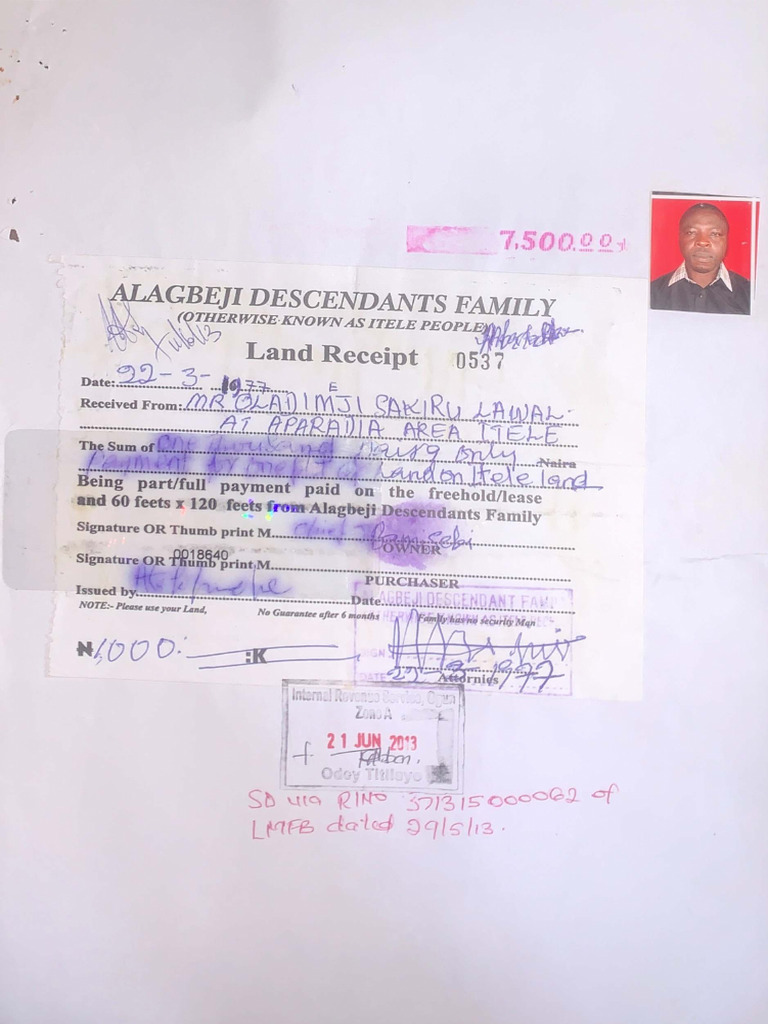 7,500.00
ALAGBEJI DESCENDANTS FAMILY
(OTHERWISE KNOWN AS ITELE PEOPLE)
Land Receipt 0537
Date: 22-3-1977
Received From: MR OLADIMEJI SAKIRU LAWAL
AT APARADIA AREA ITELE
The Sum of One thousand Naira only Naira
Payment for one plot of Land on Itele land
Being part/full payment paid on the freehold/lease
and 60 feets x 120 feets from Alagbeji Descendants Family
Signature OR Thumb print M
OWNER
0018640
Signature OR Thumb print M
PURCHASER
Issued by Date
ALAGBEJI DESCENDANT FAMILY
NOTE:- Please use your Land, No Guarantee after 6 months Family has no security Man
SIGN
₦1,000: :K
DATE 22-3-1977
Attornies
Internal Revenue Service, Ogun
Zone A
21 JUN 2013
Odoy Titilayo
SD via R/NO 371315000062 of
LMFB dated 29/5/13.